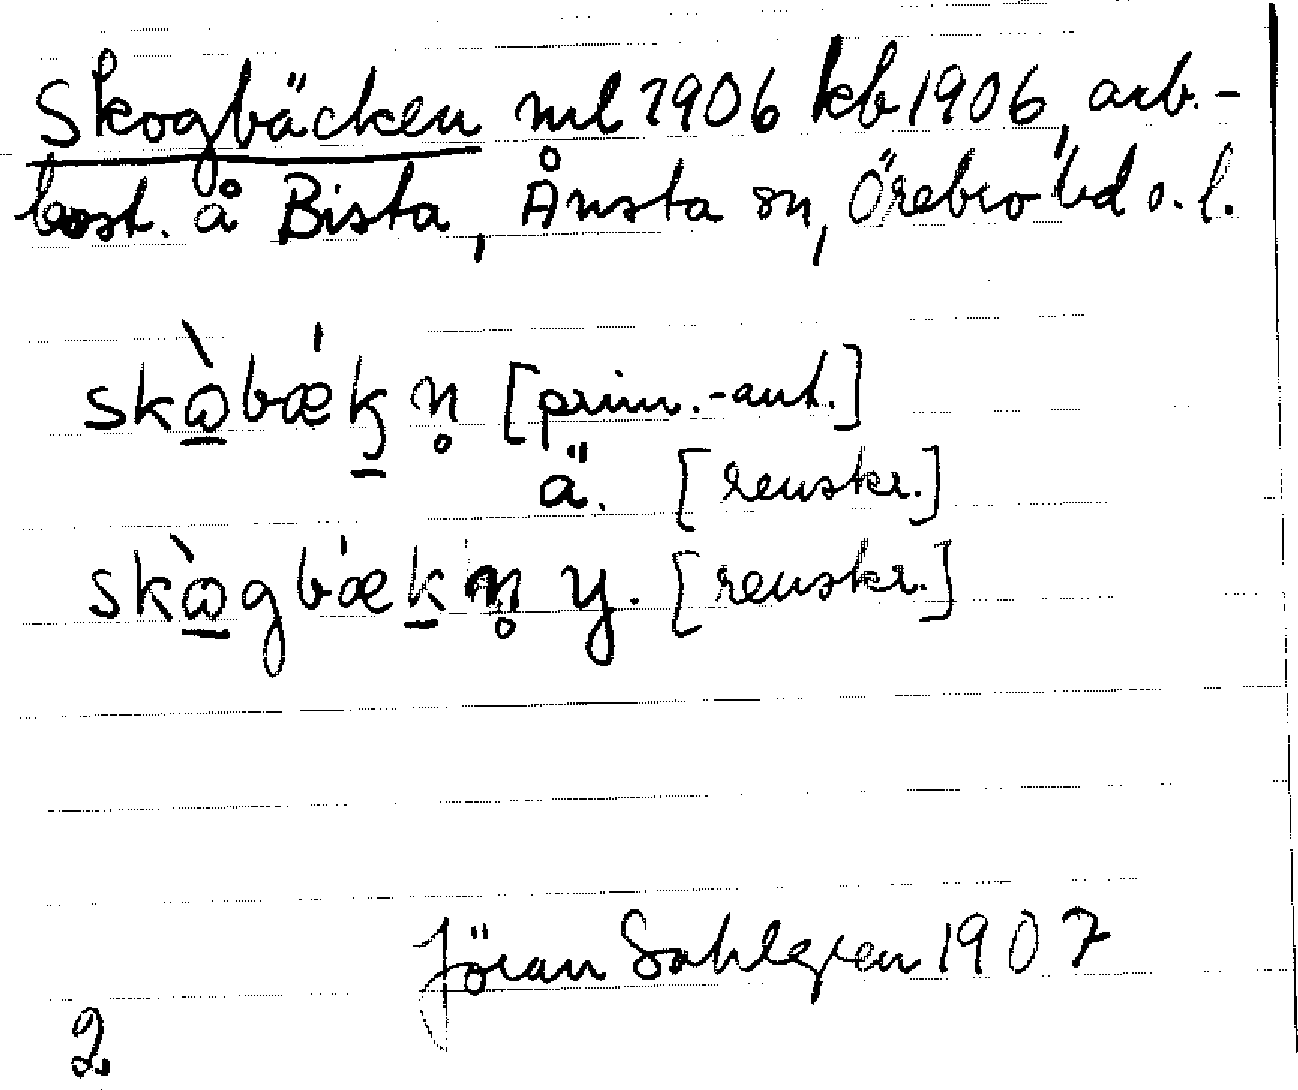 Skogbäcken ml 1906 kb 1906, arb.-
bost. å Bista, Ånsta sn, Örebro hd o. l.
skὼbǽk̠n̥ [prim.-ant.]
ä. [renskr.]
skὼgbǽk̠n̥ y. [renskr.]
Jöran Sahlgren 1907
2